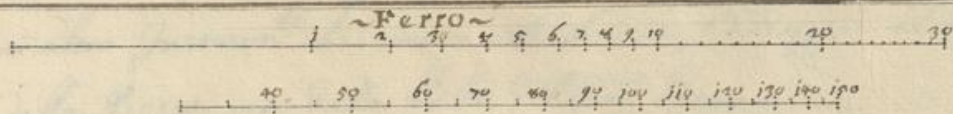 ~Ferro~
1 2 30 4 5 6 7 8 9 10 20 30
40 50 60 70 80 90 100 110 120 130 140 150